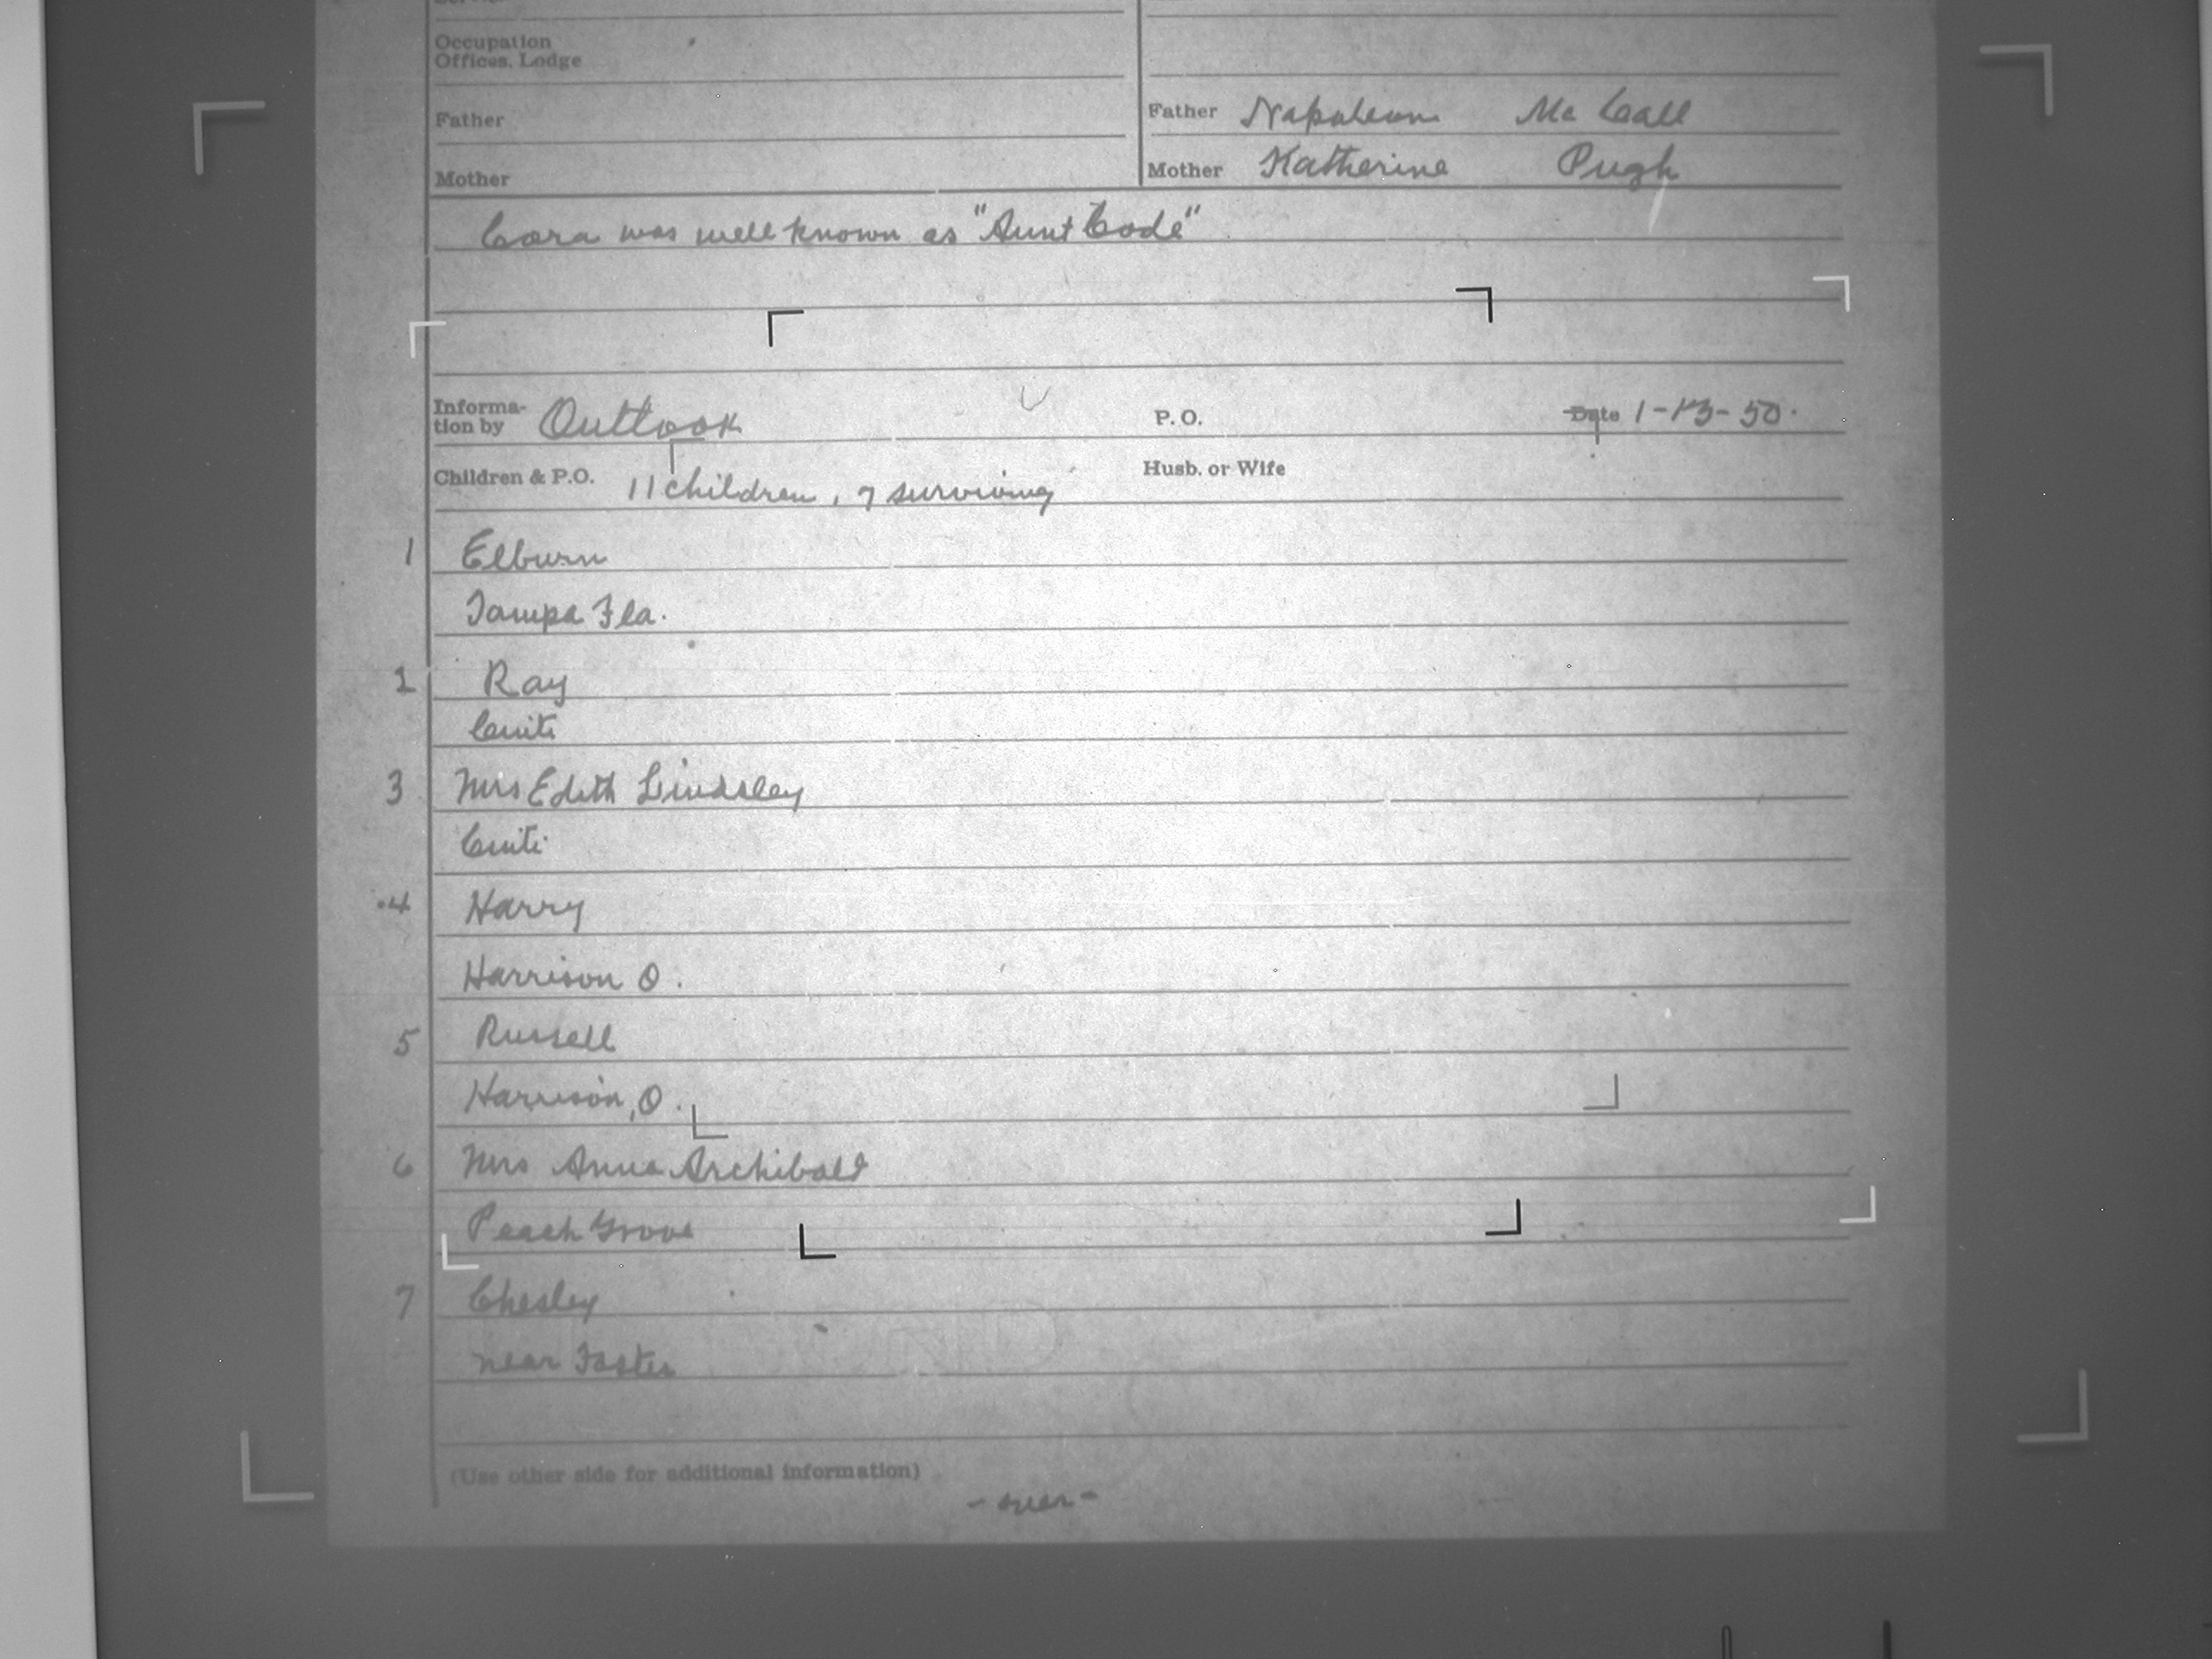 Occupation
Offices. Lodge
Father
Father Napoleon Mc Call
Mother
Mother Katherine Pugh
Cora was well known as "Aunt Code"
Informa-
tion by Outlook P.O. Date 1-13-50.
Children & P.O. 11 children, 7 surviving Husb. or Wife
1 Elburn
Tampa Fla.
2 Ray
Cinti
3 Mrs Edith Lindsley
Cinti
4 Harry
Harrison O.
5 Russell
Harrison, O.
6 Mrs Anna Archibald
Peach Grove
7 Chesley
near Foster
(Use other side for additional information)
- over -